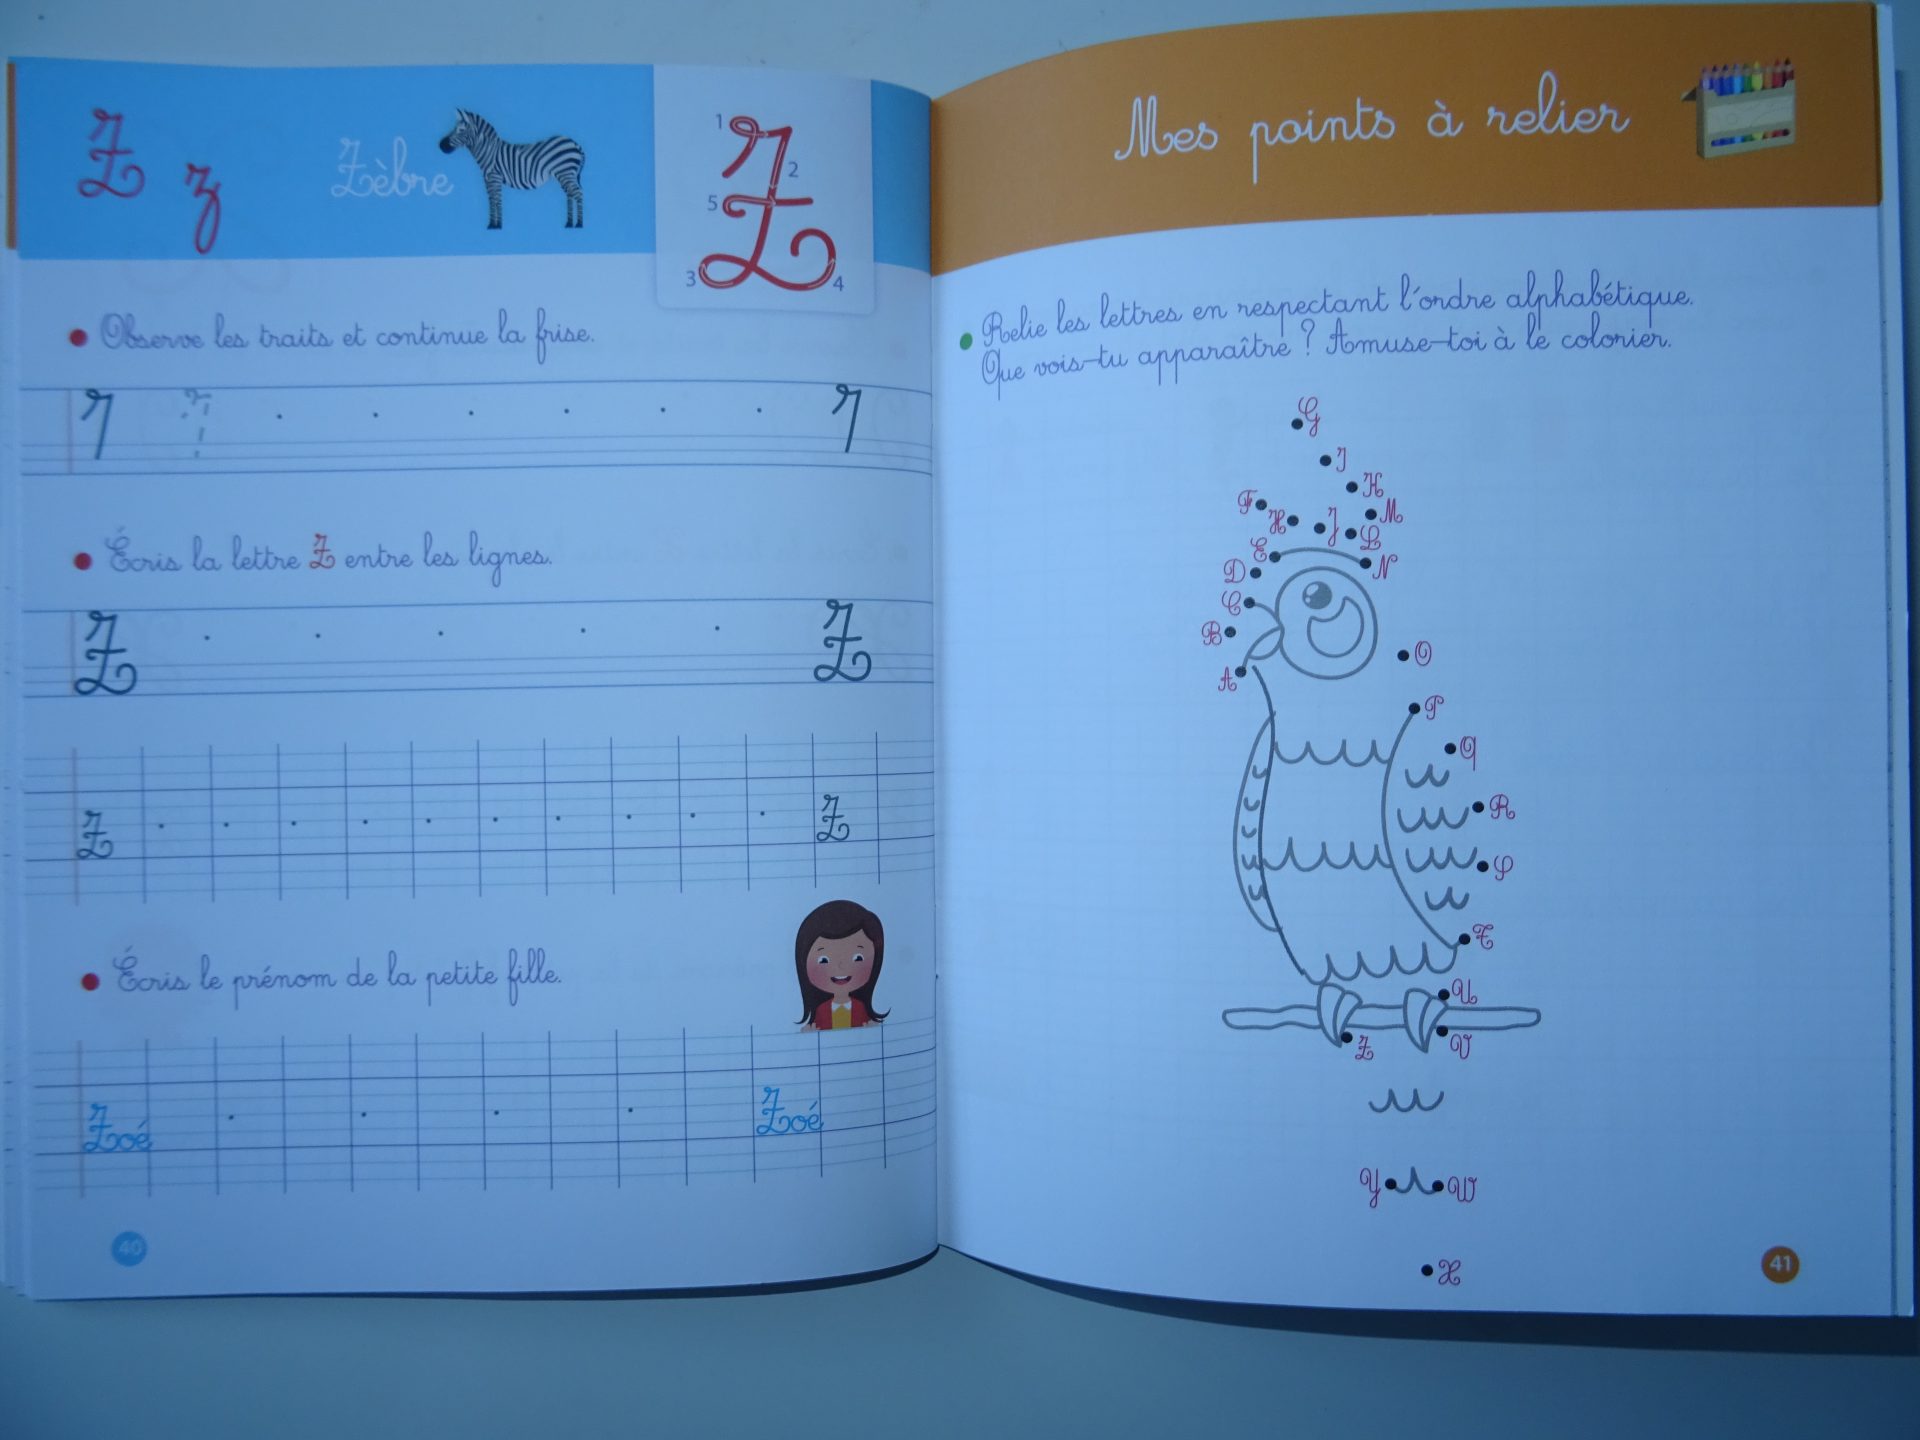 Z z Zèbre
1
2
5
3
4
Observe les traits et continue la frise.
Écris la lettre Z entre les lignes.
Z Z
Z Z
Écris le prénom de la petite fille.
Zoé Zoé
40
Mes points à relier
Relie les lettres en respectant l'ordre alphabétique.
Que vois-tu apparaître ? Amuse-toi à le colorier.
G
I
K
F
H
J
L
M
E
N
D
C
B
A
O
P
Q
R
S
T
U
V
Z
Y
W
X
41